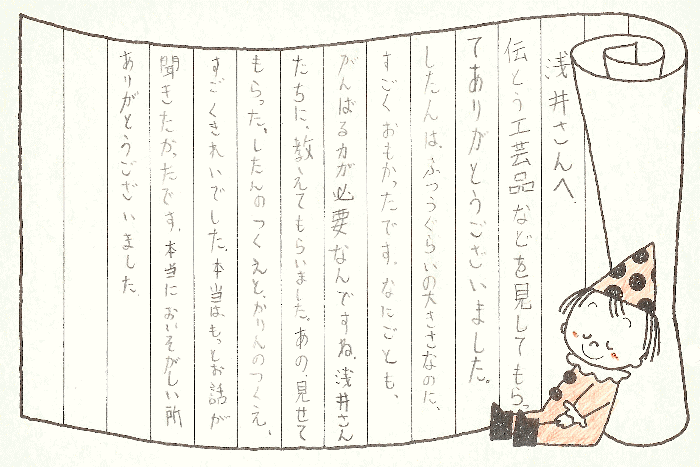 浅井さんへ
伝とう工芸品などを見してもらっ
てありがとうございました。
したんは、ふつうぐらいの大きさなのに、
すごくおもかったです。なにごとも、
がんばる力が必要なんですね。浅井さん
たちに、教えてもらいました。あの、見せて
もらった、したんのつくえと、かりんのつくえ、
すごくきれいでした。本当はもっとお話が
聞きたかったです。本当においそがしい所
ありがとうございました。